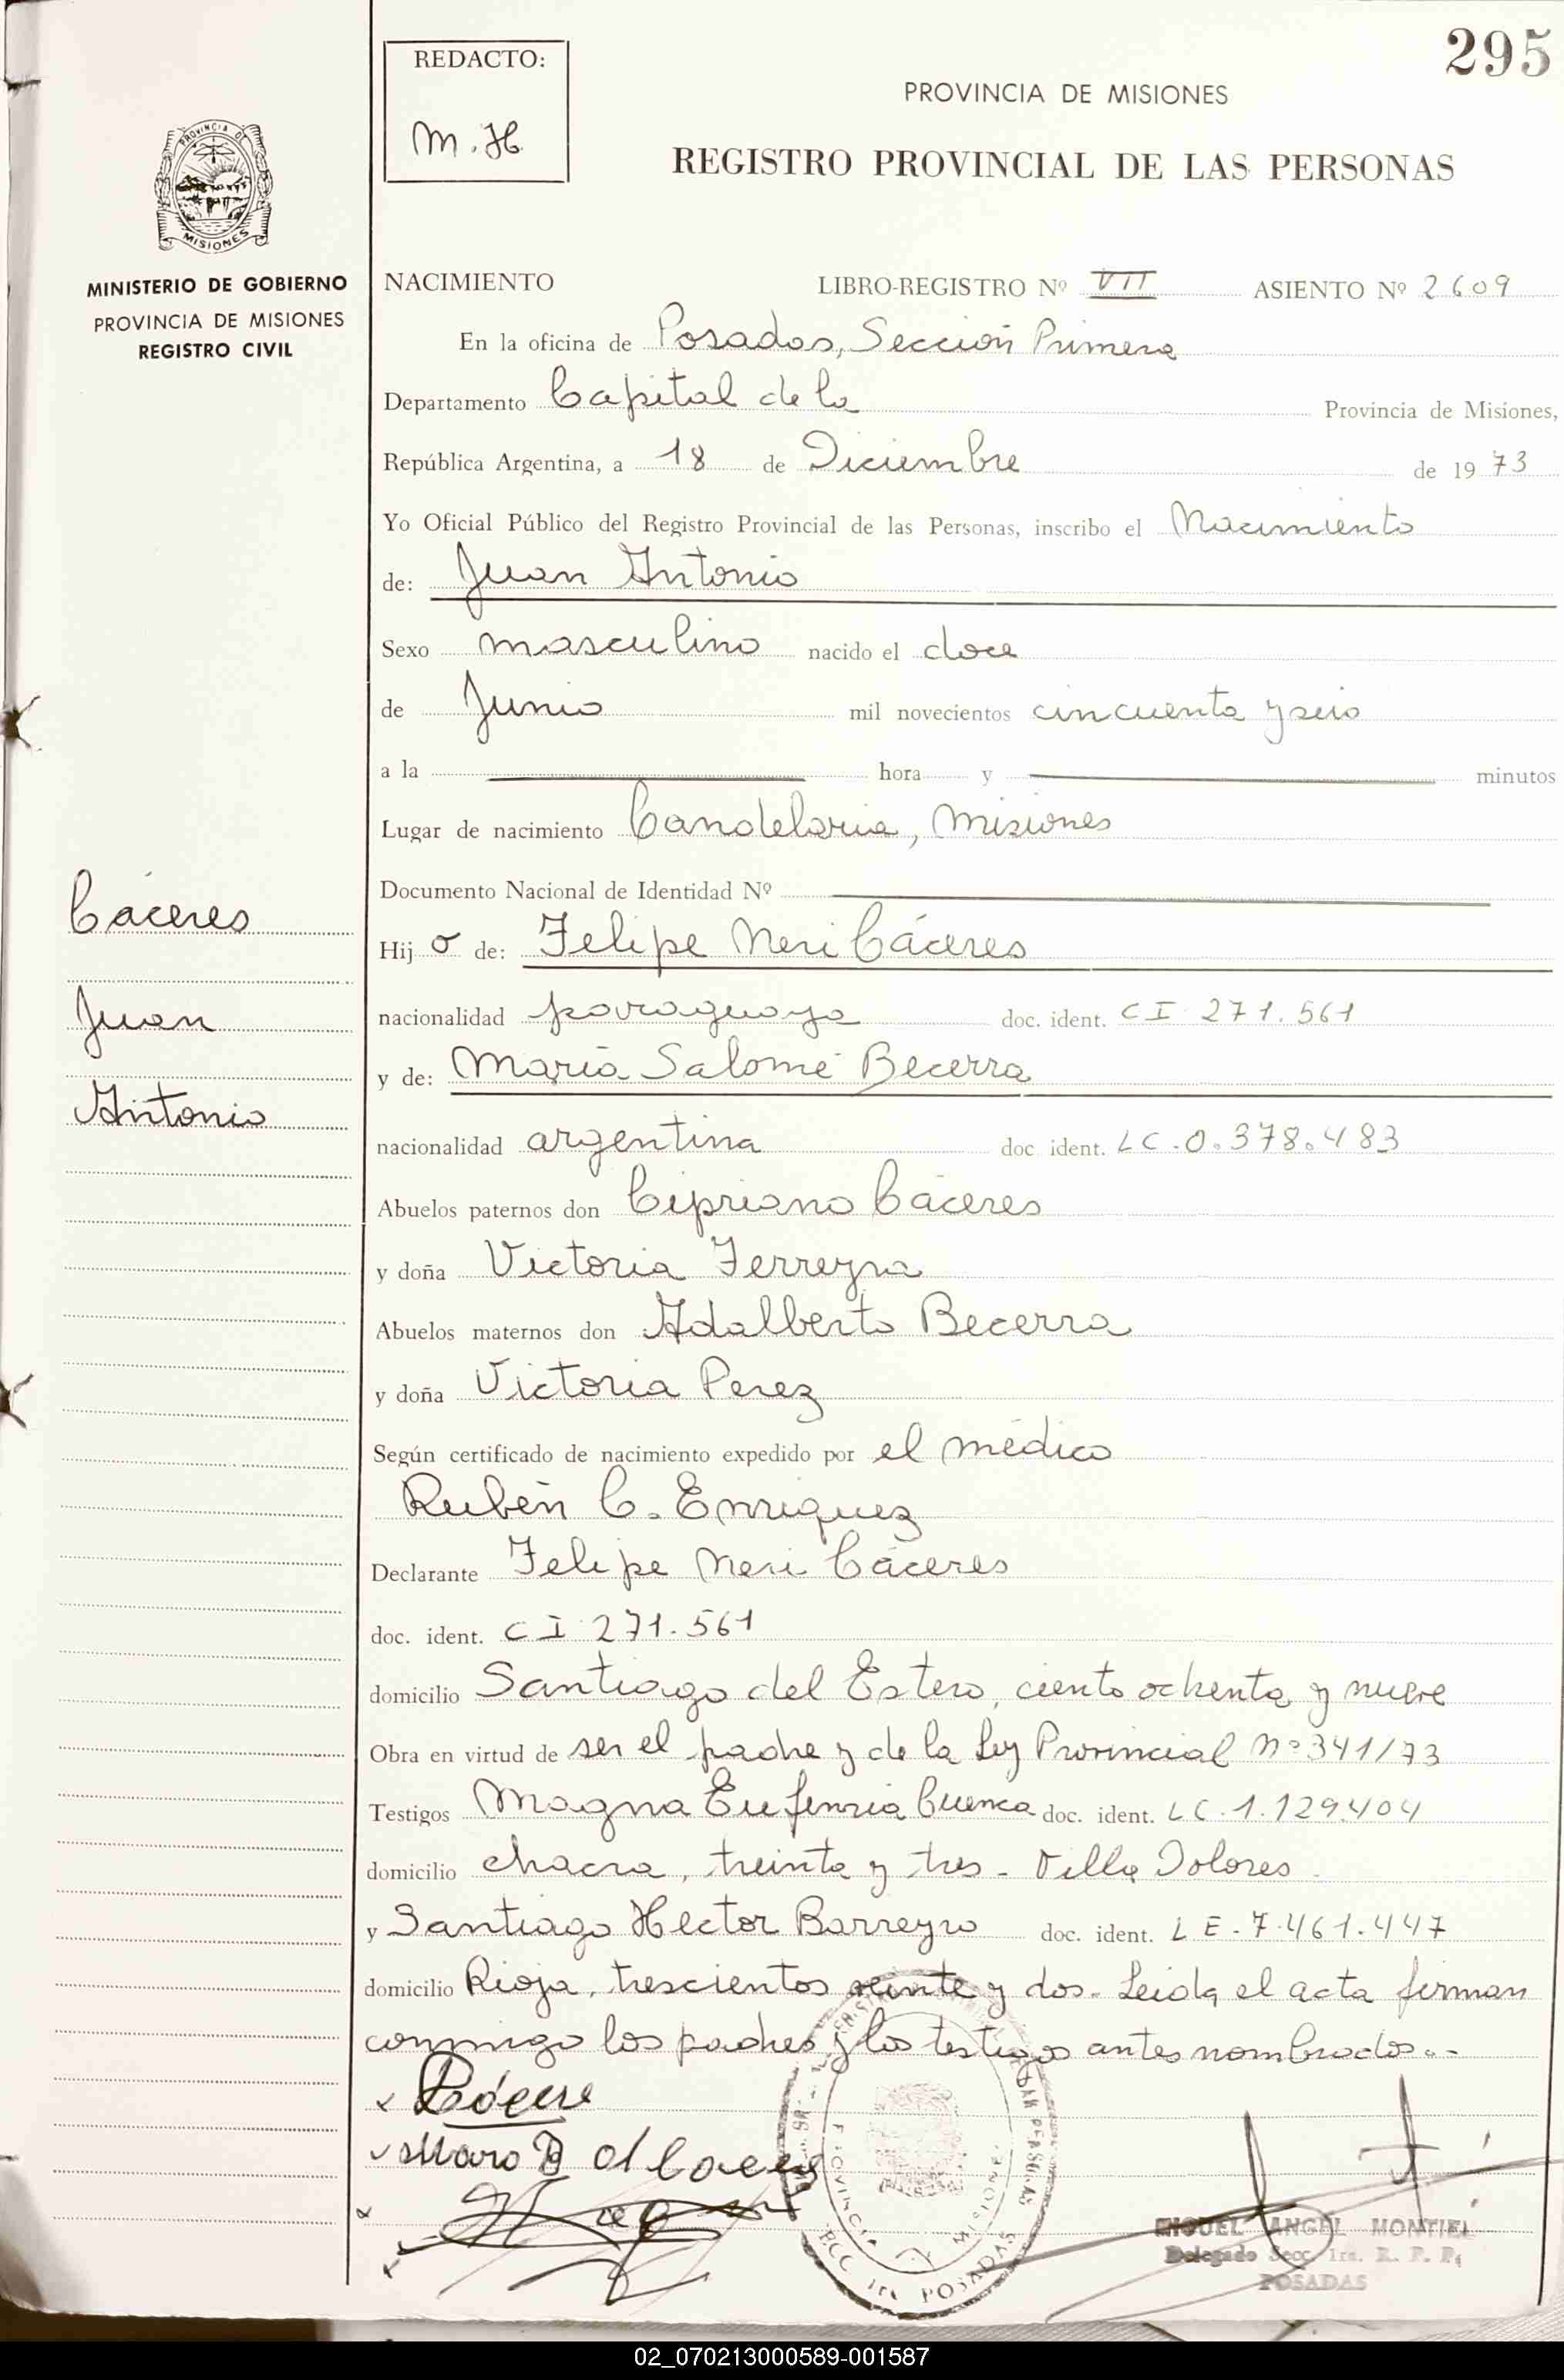 295
REDACTO:
M.H.
PROVINCIA DE MISIONES
REGISTRO PROVINCIAL DE LAS PERSONAS
PROVINCIA DE
MISIONES
MINISTERIO DE GOBIERNO
PROVINCIA DE MISIONES
REGISTRO CIVIL
NACIMIENTO LIBRO-REGISTRO Nº VII ASIENTO Nº 2609
En la oficina de Posadas, Sección Primera
Departamento Capital de la Provincia de Misiones,
República Argentina, a 18 de Diciembre de 1973
Yo Oficial Público del Registro Provincial de las Personas, inscribo el Nacimiento
de: Juan Antonio
Sexo masculino nacido el doce
de Junio mil novecientos cincuenta y seis
a la hora y minutos
Lugar de nacimiento Candelaria, Misiones
Documento Nacional de Identidad Nº
Cáceres
Juan
Antonio
Hijo de: Felipe Neri Cáceres
nacionalidad paraguaya doc. ident. CI 271.561
y de: María Salomé Becerra
nacionalidad argentina doc ident. LC.0.378.483
Abuelos paternos don Cipriano Cáceres
y doña Victoria Ferreyra
Abuelos maternos don Adalberto Becerra
y doña Victoria Perez
Según certificado de nacimiento expedido por el médico
Rubén C. Enriquez
Declarante Felipe Neri Cáceres
doc. ident. CI 271.561
domicilio Santiago del Estero, ciento ochenta y nueve
Obra en virtud de ser el padre y de la Ley Provincial nº 341/73
Testigos Magna Eufemia Cuenca doc. ident. LC.1.129.404
domicilio chacra, treinta y tres - Villa Dolores
y Santiago Hector Barreyro doc. ident. LE-7.461.447
domicilio Rioja, trescientos veinte y dos. Leida el acta firman
conmigo los padres y los testigos antes nombrados..-
PROVINCIA MISIONES
POSADAS
MIGUEL ANGEL MONTIEL
Delegado Secc. 1ra. R. P. P.
POSADAS
02_070213000589-001587